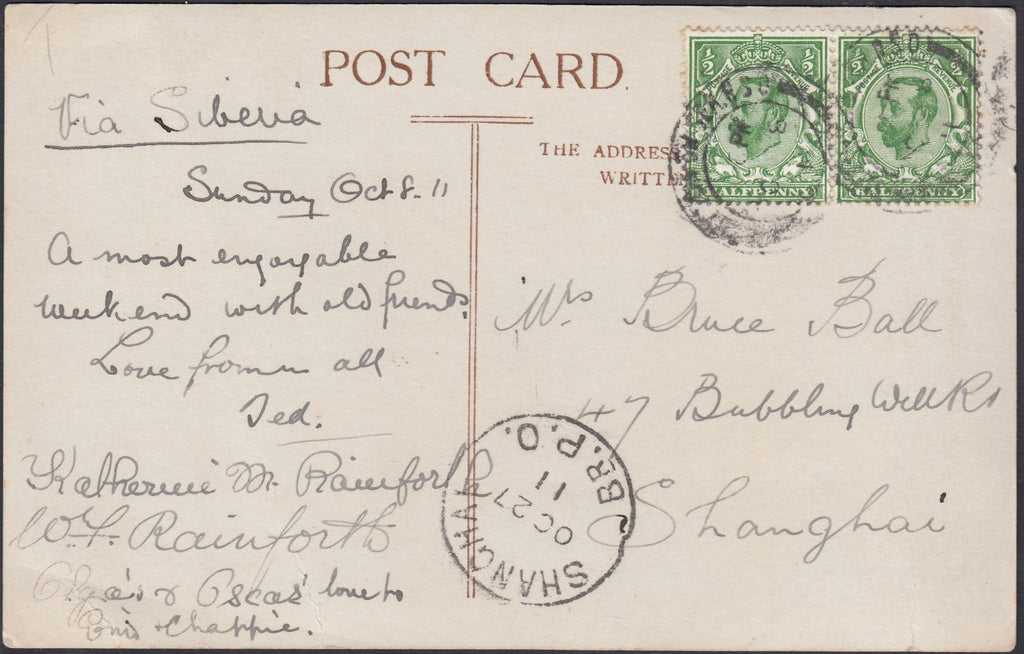 POST CARD
Via Siberia
THE ADDRESS
WRITTE
Sunday Oct 8. 11
A most enjoyable
weekend with old friends.
Love from all
Ted.
Katherine M. Rainforth
W. F. Rainforth
Olga's & Oscar's love to
Enid & Chappie.
Mrs Bruce Ball
47 Bubbling Well Rd
Shanghai
SHANGHAI BR. P. O.
OC 27
11
½ ½
HALFPENNY
½ ½
HALFPENNY